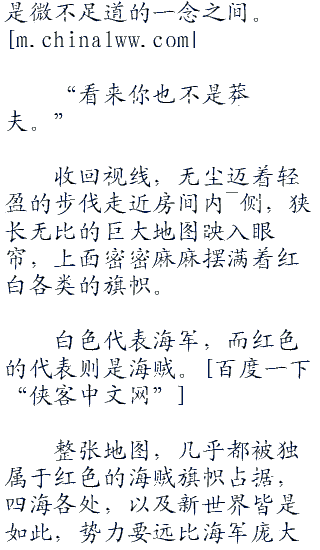 是微不足道的一念之间。
[m.chinalww.com]
“看来你也不是莽
夫。”
收回视线，无尘迈着轻
盈的步伐走近房间内侧，狭
长无比的巨大地图映入眼
帘，上面密密麻麻摆满着红
白各类的旗帜。
白色代表海军，而红色
的代表则是海贼。[百度一下
“侠客中文网”]
整张地图，几乎都被独
属于红色的海贼旗帜占据，
四海各处，以及新世界皆是
如此，势力要远比海军庞大